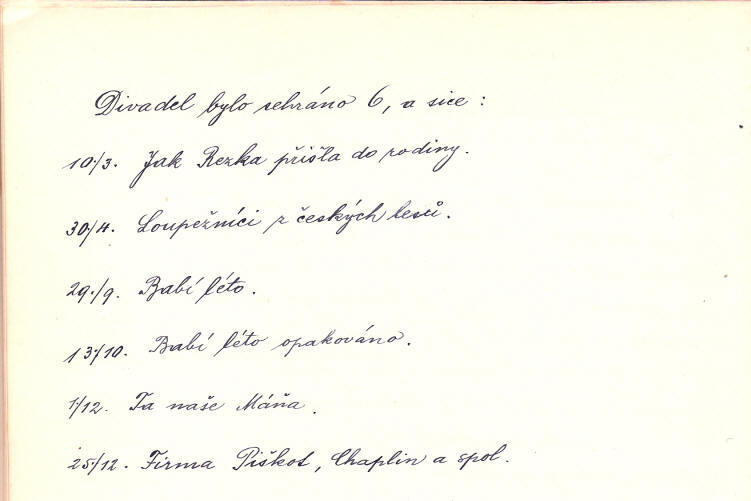 Divadel bylo sehráno 6, a sice :
10./3. Jak Rezka přišla do rodiny.
30/4. Loupežníci z českých lesů.
29./9. Babí léto.
13./10. Babí léto opakováno.
1/12. Ta naše Máňa.
25/12. Firma Piškot, Chaplin a spol.